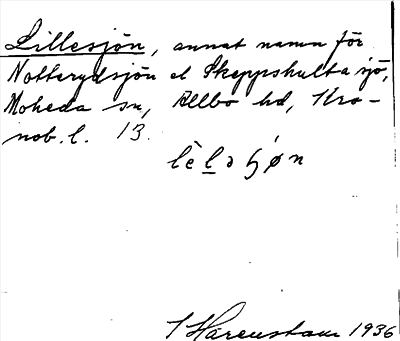 Lillesjön, annat namn för
Notterydsjön el Skeppshulta sjö,
Moheda sn, Allbo hd, Kro-
nob. l. 13.
lèləʃǿn
J Harenstam 1936